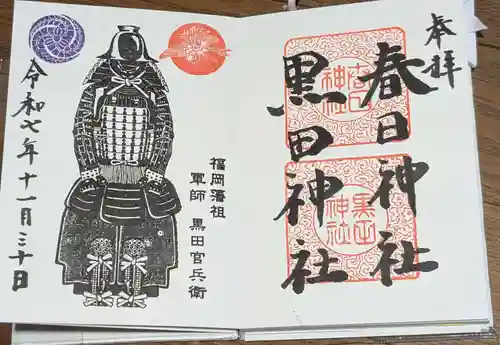 奉拝
春日神社
黒田神社
春日
神社
黒田
神社
福岡藩祖
軍師 黒田官兵衛
令和七年十一月三十日